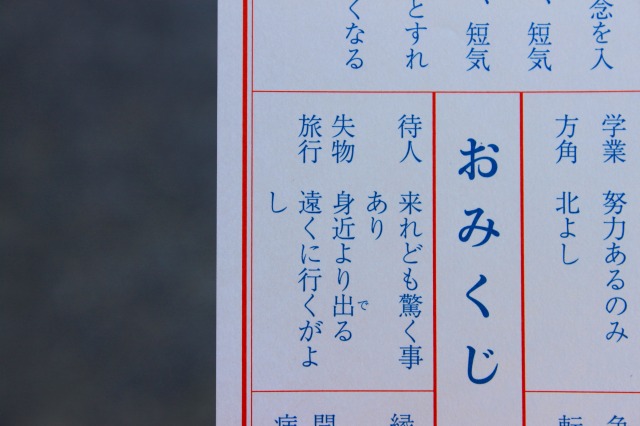 念を入
、短気
、短気
とすれ
くなる
学業 努力あるのみ
方角 北よし
おみくじ
待人 来れども驚く事
あり
失物 身近より出る
で
旅行 遠くに行くがよ
し
縁